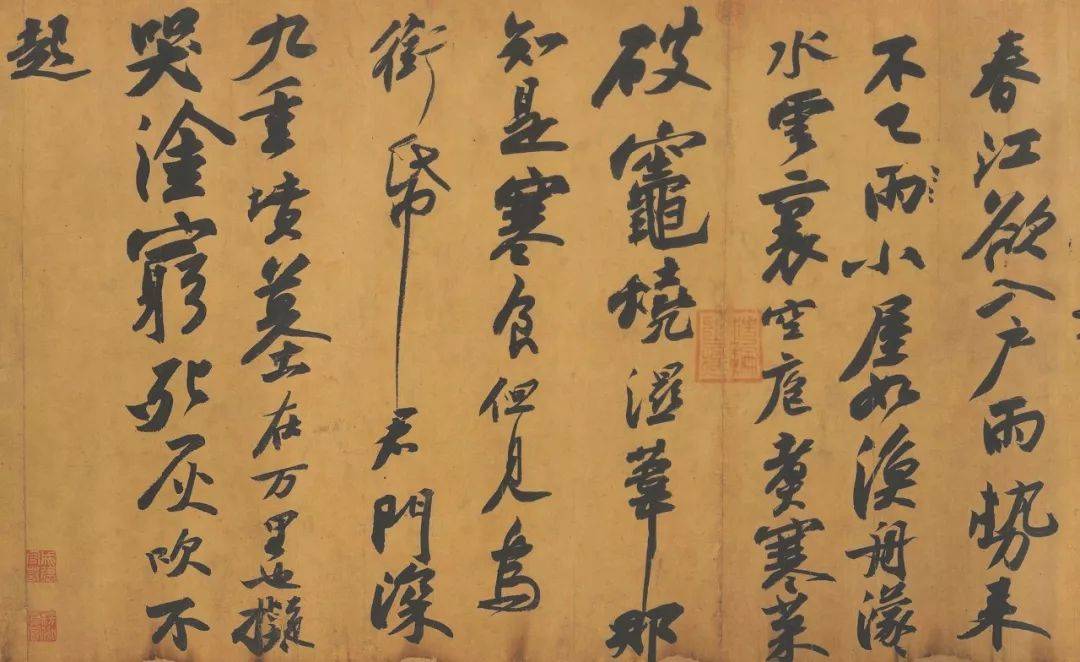 春江欲入户雨勢来
不已雨小屋如漁舟濛〻
水雲裏空庖煮寒菜
破竈燒濕葦那
知是寒食但見烏
銜帋君門深
九重墳墓在万里也擬
哭塗窮死灰吹不
起